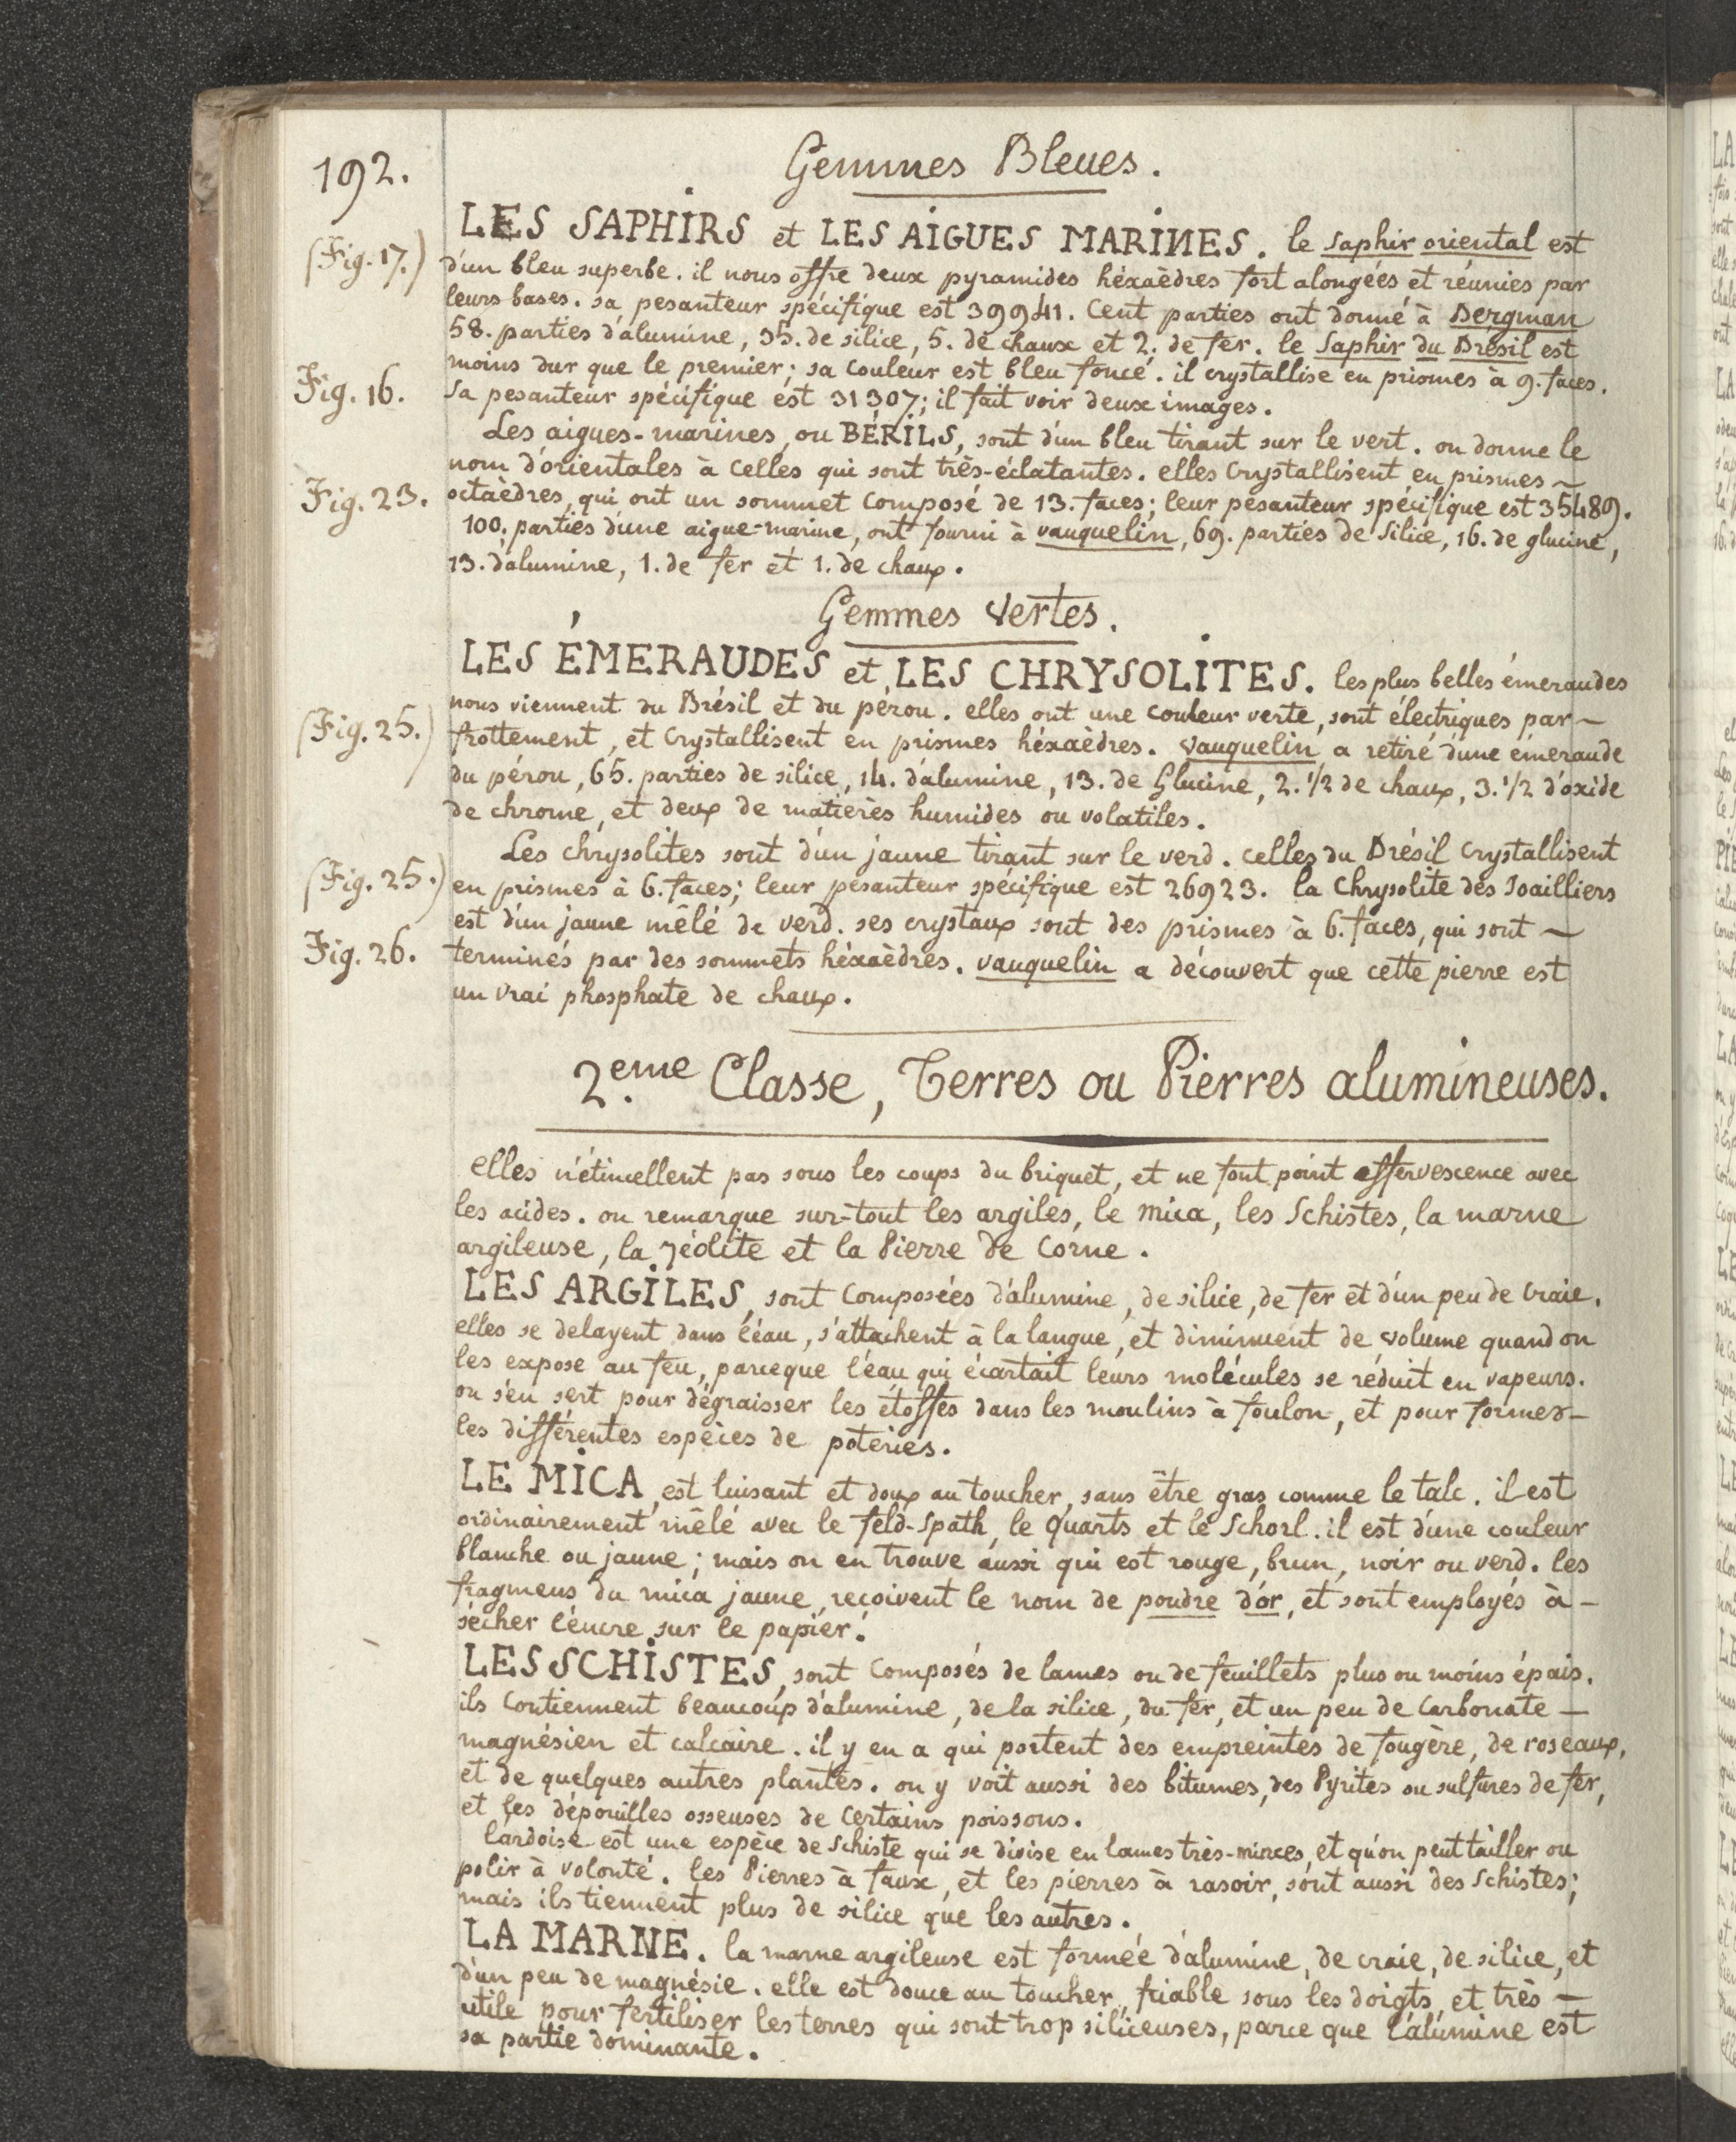 192.
Gemmes Bleues.
LES SAPHIRS et LES AIGUES MARINES. le saphir oriental est
(Fig. 17.)
d'un bleu superbe. il nous offre deux pyramides héxaèdres fort alongées et réunies par
leurs bases. sa pesanteur spécifique est 39941. Cent parties ont donné à Bergman
58. parties d'alumine, 35. de silice, 5. de chaux et 2. de fer. le Saphir du Brésil est
moins dur que le premier; sa couleur est bleu foncé. il crystallise en prismes à 9. faces.
Fig. 16.
sa pesanteur spécifique est 31307; il fait voir deux images.
Les aigues-marines, ou BÉRILS, sont d'un bleu tirant sur le vert. on donne le
nom d'orientales à celles qui sont très-éclatantes. elles crystallisent en prismes ~
Fig. 23.
octaèdres, qui ont un sommet composé de 13. faces; leur pesanteur spécifique est 35489.
100. parties d'une aigue-marine, ont fourni à vauquelin, 69. parties de silice, 16. de glucine,
13. d'alumine, 1. de fer et 1. de chaux.
Gemmes vertes.
LES ÉMERAUDES et LES CHRYSOLITES. les plus belles émeraudes
nous viennent du Brésil et du pérou. elles ont une couleur verte, sont électriques par ~
(Fig. 25.)
frottement, et crystallisent en prismes héxaèdres. vauquelin a retiré d'une émeraude
du pérou, 65. parties de silice, 14. d'alumine, 13. de Glucine, 2. 1/2 de chaux, 3. 1/2 d'oxide
de chrome, et deux de matières humides ou volatiles.
Les chrysolites sont d'un jaune tirant sur le verd. celles du Brésil crystallisent
(Fig. 25.)
en prismes à 6. faces; leur pesanteur spécifique est 26923. la Chrysolite des Joailliers
est d'un jaune mêlé de verd. ses crystaux sont des prismes à 6. faces, qui sont ~
Fig. 26.
terminés par des sommets héxaèdres. vauquelin a découvert que cette pierre est
un vrai phosphate de chaux.
2.eme Classe, Terres ou Pierres alumineuses.
elles n'étincellent pas sous les coups du briquet, et ne font point effervescence avec
les acides. on remarque sur-tout les argiles, le mica, les Schistes, la marne
argileuse, la zéolite et la Pierre de Corne.
LES ARGILES, sont composées d'alumine, de silice, de fer et d'un peu de craie.
elles se delayent dans l'éau, s'attachent à la langue, et diminuent de volume quand on
les expose au feu, parceque l'éau qui écartait leurs molécules se réduit en vapeurs.
on s'en sert pour dégraisser les étoffes dans les moulins à foulon, et pour former —
les différentes espèces de poteries.
LE MICA, est luisant et doux au toucher, sans être gras comme le talc. il est
ordinairement mêlé avec le feld-Spath, le Quarts et le Schorl. il est d'une couleur
blanche ou jaune; mais on en trouve aussi qui est rouge, brun, noir ou verd. les
fragmens du mica jaune, reçoivent le nom de poudre d'or, et sont employés à —
sécher l'encre sur le papier.
LES SCHISTES, sont composés de lames ou de feuillets plus ou moins épais.
ils contiennent beaucoup d'alumine, de la silice, du fer, et un peu de carbonate —
magnésien et calcaire. il y en a qui portent des empreintes de fougère, de roseaux,
et de quelques autres plantes. on y voit aussi des bitumes, des Pyrites ou sulfures de fer,
et les dépouilles osseuses de certains poissons.
l'ardoise est une espèce de schiste qui se divise en lames très-minces, et qu'on peut tailler ou
polir à volonté. les Pierres à faux, et les pierres à rasoir, sont aussi des schistes;
mais ils tiennent plus de silice que les autres.
LA MARNE. la marne argileuse est formée d'alumine, de craie, de silice, et
d'un peu de magnésie. elle est douce au toucher, friable sous les doigts, et très —
utile pour fertiliser les terres qui sont trop siliceuses, parce que l'alumine est
sa partie dominante.